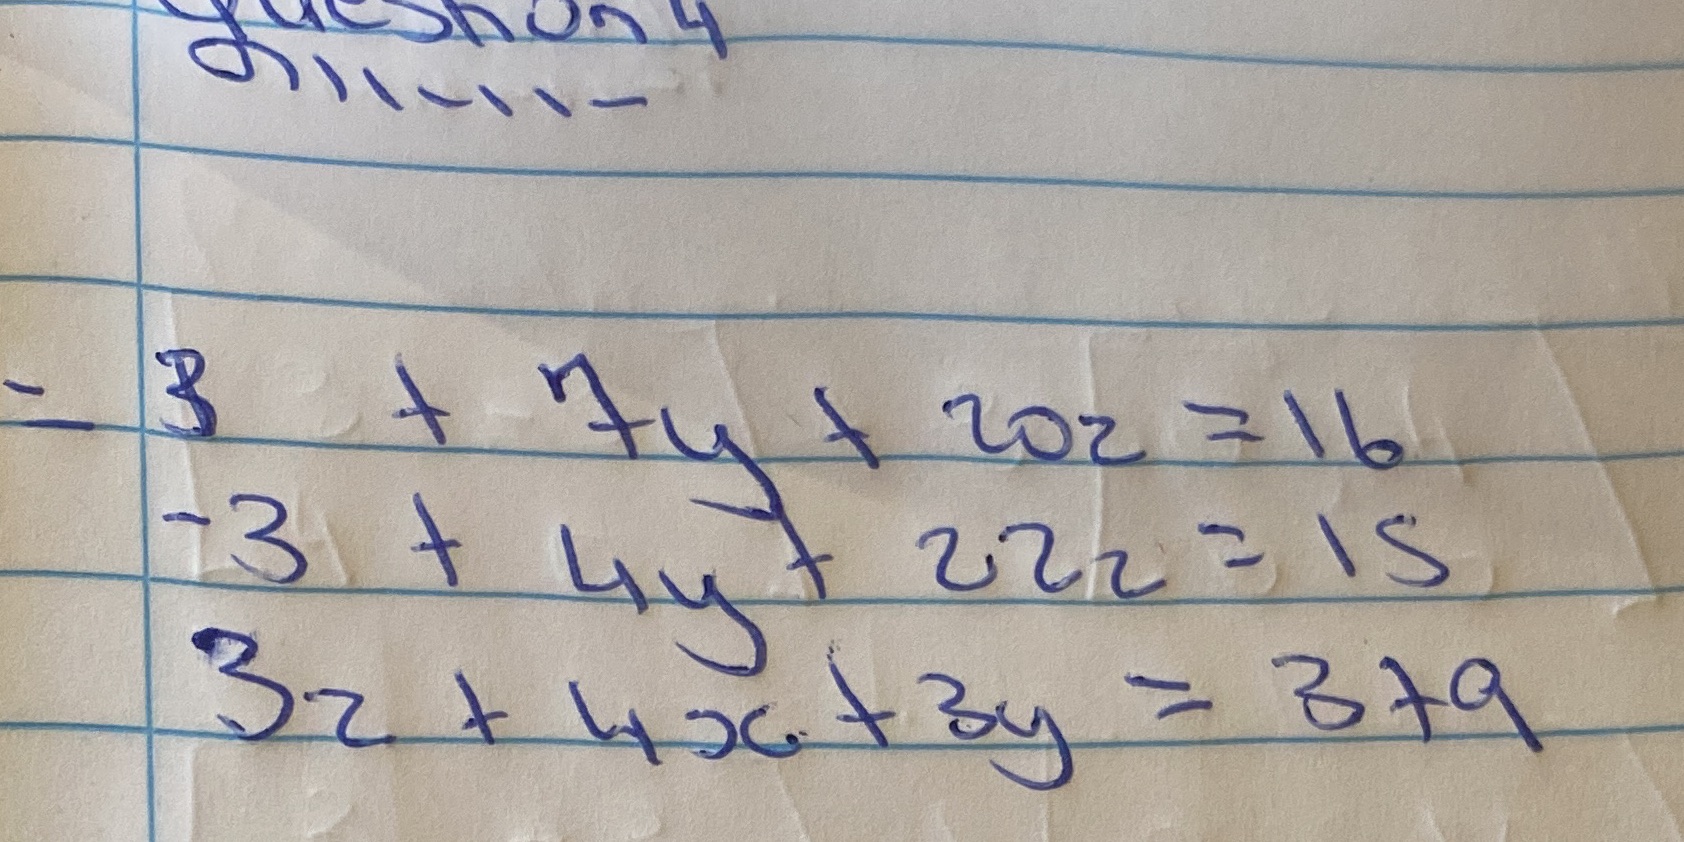 Question 4
= 3 + 7y + 20z = 16
-3 + 4y + 22z = 15
3z + 4x + 3y = 3+9